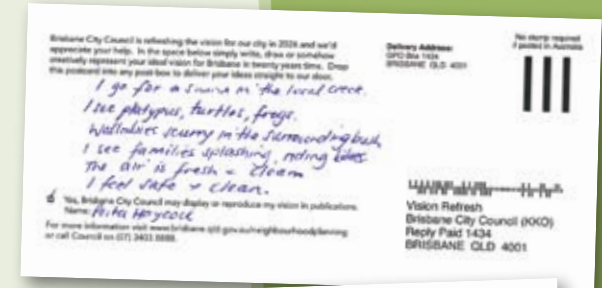 Brisbane City Council is refreshing the vision for our city in 2026 and we'd
appreciate your help. In the space below simply write, draw or somehow
creatively represent your ideal vision for Brisbane in twenty years time. Drop
this postcard into any post-box to deliver your ideas straight to our door.
I go for a swim in the local creek.
I see platypus, turtles, frogs.
Wallabies scurry in the surrounding bush
I see families splashing, riding bikes
The air is fresh & clean
I feel safe & clean.
Yes, Brisbane City Council may display or reproduce my vision in publications.
Name: Haycock
For more information visit www.brisbane.qld.gov.au/neighbourhoodplanning
or call Council on (07) 3403 8888.
Delivery Address:
GPO Box 1434
BRISBANE QLD 4001
No stamp required
if posted in Australia
Vision Refresh
Brisbane City Council (KKO)
Reply Paid 1434
BRISBANE QLD 4001